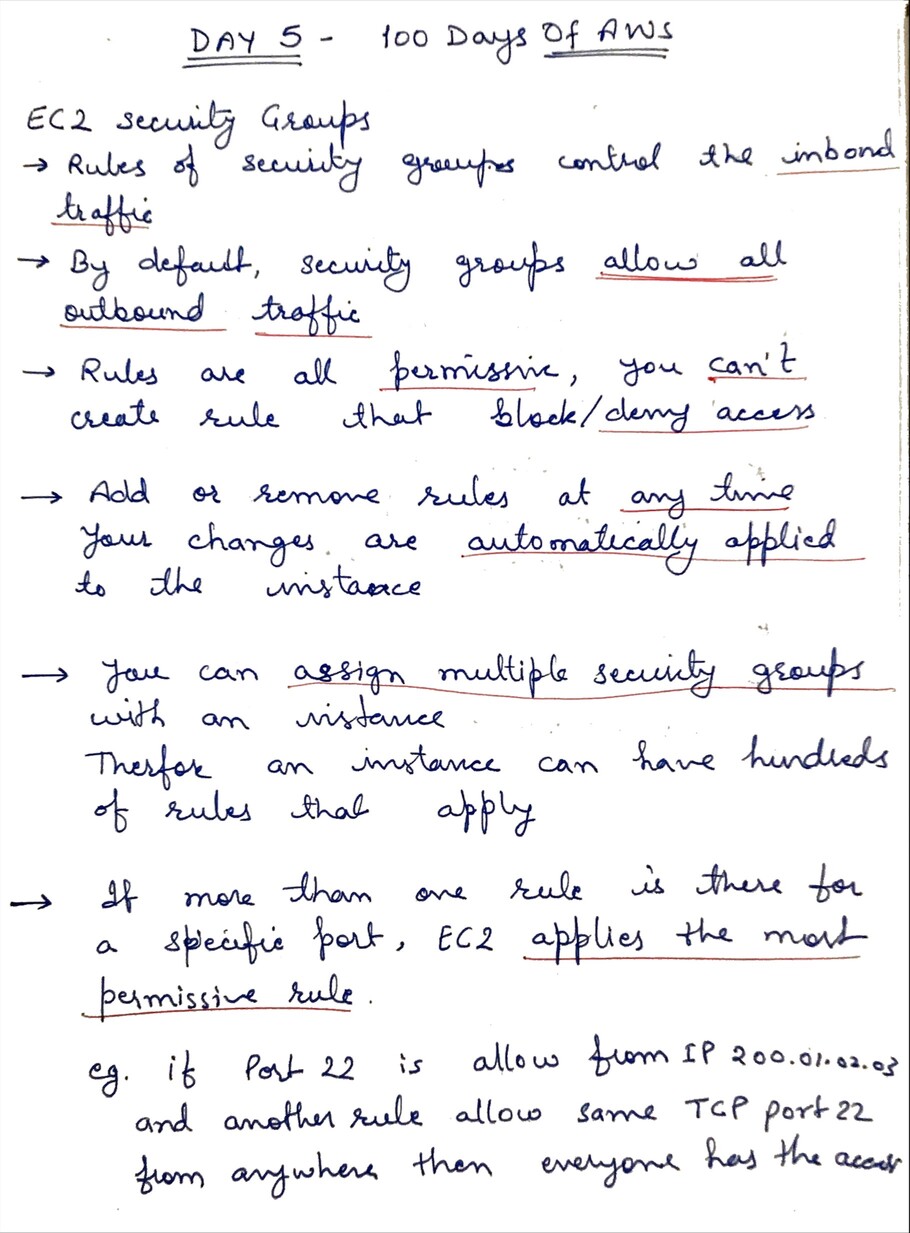 DAY 5 - 100 Days Of AWS
EC2 security Groups
→ Rules of security groups control the inbond
traffic
→ By default, security groups allow all
outbound traffic
→ Rules are all permissive, you can't
create rule that block/deny access
→ Add or remove rules at any time
Your changes are automatically applied
to the instance
→ You can assign multiple security groups
with an instance
Therfor an instance can have hundreds
of rules that apply
→ If more than one rule is there for
a specific port, EC2 applies the most
permissive rule.
eg. if Port 22 is allow from IP 200.01.02.03
and another rule allow same TCP port 22
from anywhere then everyone has the access